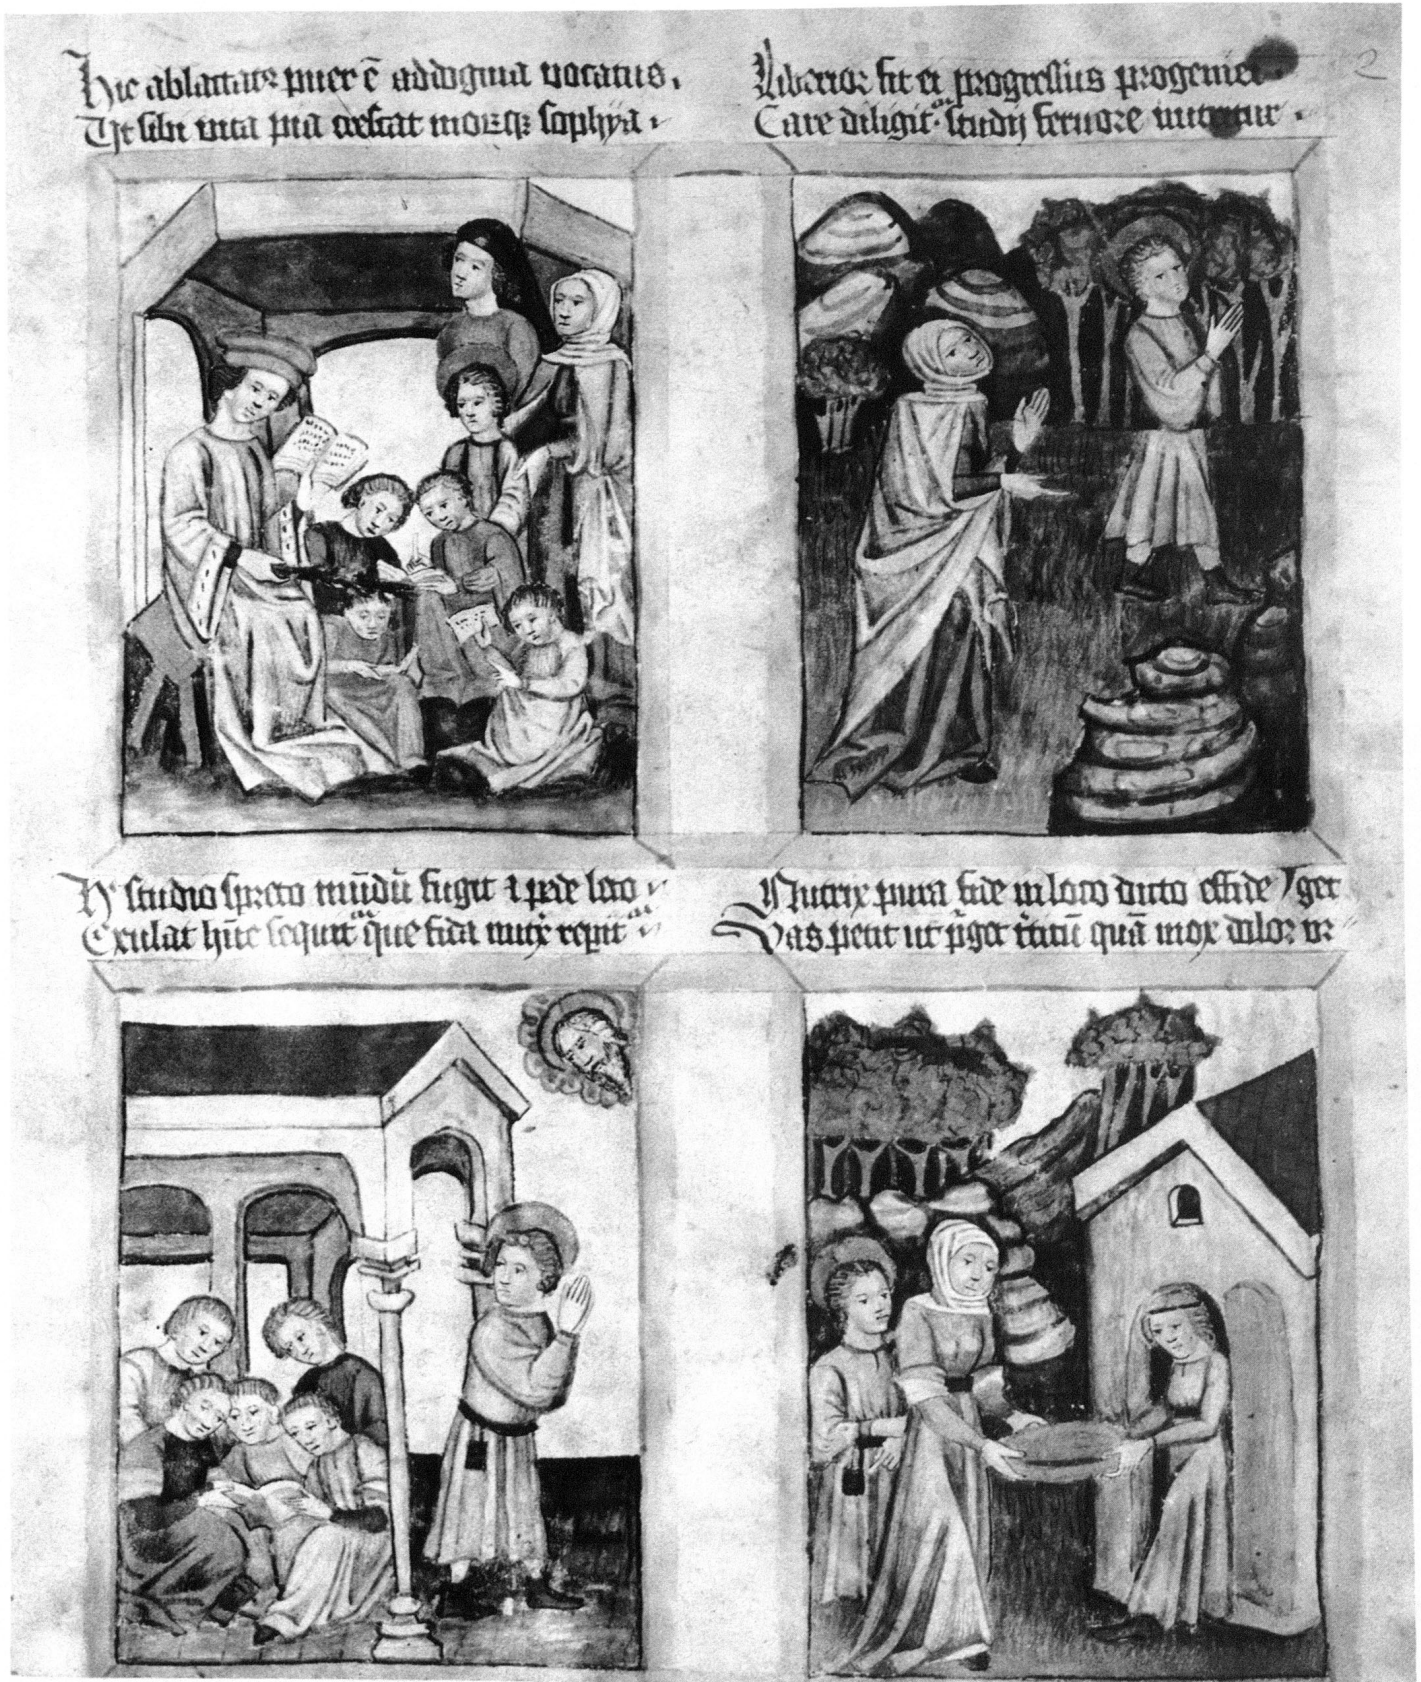 Hic ablactatr puer ē addogma vocatus.
Ut sibi vita pia crescat morqz sophya
Liberior fit ei progressus progeniei
Care diligitur studij fervore
2
studio spreto mūdū fugit pede leto
Exulat hūc sequitur que fida nutx
Nutrix pura fide in loco dicto effide get
Vas petit ut pget quā mox dolor vr